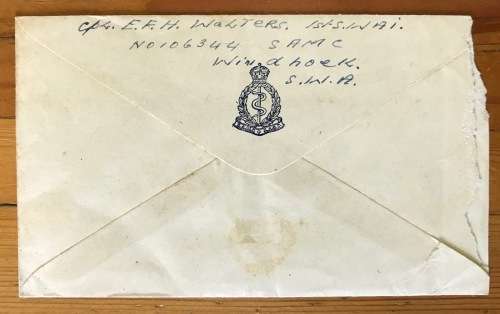 Cpl. E.F.H. Walters. 1st S.W.A i.
No 106344 SAMC
Windhoek.
S.W.A.